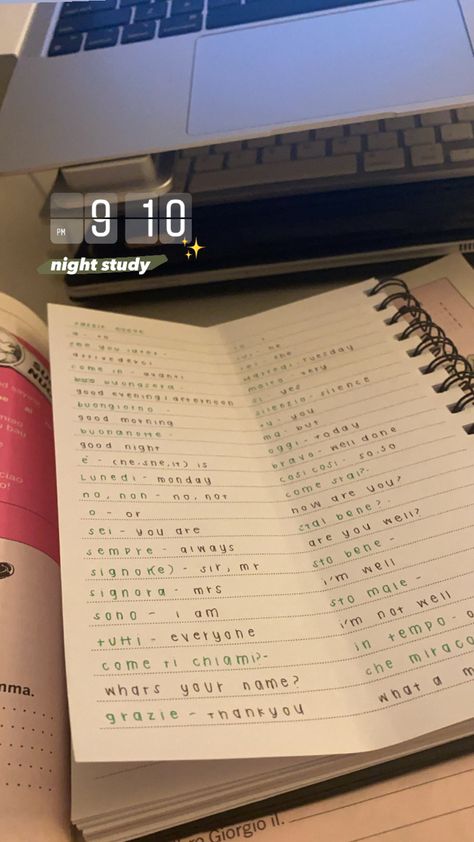 PM 9 10
night study
a - to
see you later -
arrivederci
come in - avanti
buonasera -
good evening/afternoon
buongiorno -
good morning
buonanotte -
good night
è - (he, she, it) is
Lunedì - monday
no, non - no, not
o - or
sei - you are
sempre - always
signor(e) - sir, mr
signora - mrs
sono - i am
tutti - everyone
come ti chiami? -
whats your name?
grazie - thankyou
martedì - tuesday
molto - very
sì - yes
silenzio - silence
tu - you
ma - but
oggi - today
bravo - well done
così così - so, so
come stai? -
how are you?
stai bene? -
are you well?
sto bene -
i'm well
sto male -
i'm not well
in tempo - o
che miraco
what a m
ciao
o!
nma.
Giorgio il.